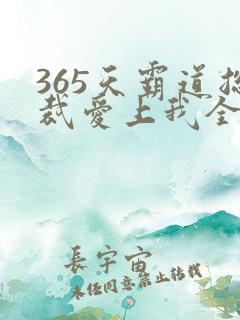 365天霸道总
裁爱上我全
長宇宙
未经同意禁止转载